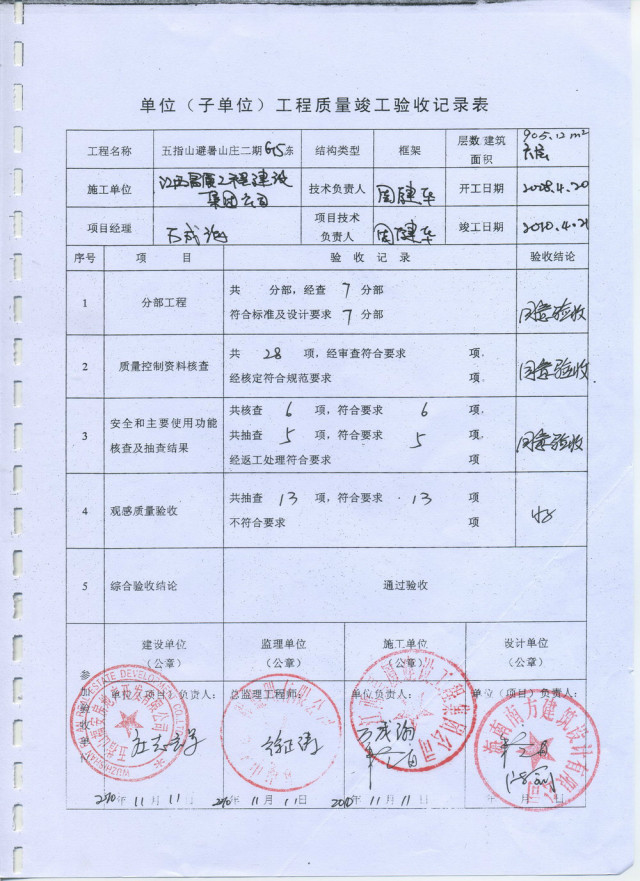 单位（子单位）工程质量竣工验收记录表
工程名称 五指山避暑山庄二期 栋 结构类型 框架 层数 建筑面积 905.12 m²
施工单位 技术负责人 周建华 开工日期 2008.4.20
集团公司
项目经理 万成海 项目技术负责人 周建华 竣工日期 2010.4.21
序号 项 目 验 收 记 录 验收结论
1 分部工程 共 分部，经查 7 分部 同意验收
符合标准及设计要求 7 分部
2 质量控制资料核查 共 28 项，经审查符合要求 项， 同意验收
经核定符合规范要求 项
3 安全和主要使用功能核查及抽查结果 共核查 6 项，符合要求 6 项， 同意验收
共抽查 5 项，符合要求 5 项，
经返工处理符合要求 项
4 观感质量验收 共抽查 13 项，符合要求 13 项 好
不符合要求 项
5 综合验收结论 通过验收
建设单位 监理单位 施工单位 设计单位
（公章） （公章） （公章） （公章）
单位（项目）负责人： 总监理工程师： 单位负责人： 单位（项目）负责人：
2010年 11月 11日 2010年 11月 11日 2010年 11月 11日 年 月 日
海南南方建筑设计有限公司